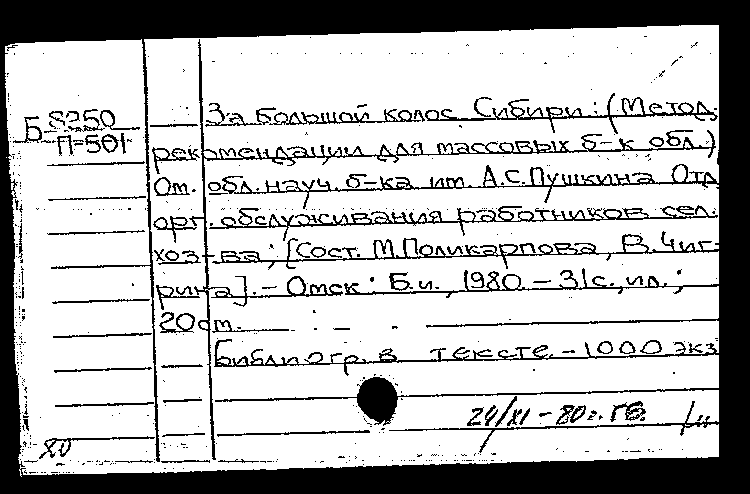 Б 8250
П-501
За большой колос Сибири: (Метод.
рекомендации для массовых б-к обл.)
Ом. обл. науч. б-ка им. А.С.Пушкина Отд
орг. обслуживания работников сел.
хоз-ва; [Сост. М.Поликарпова, В.Чиг-
рина]. – Омск: Б.и., 1980. – 31с., ил.;
20см.
Библиогр. в тексте. – 1000 экз
24/XI – 80г. ГБ.
80